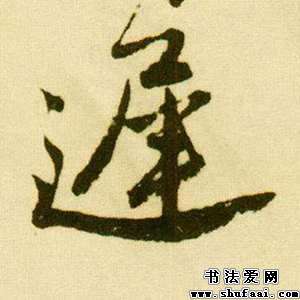 遲
书法爱网
www.shufaai.com